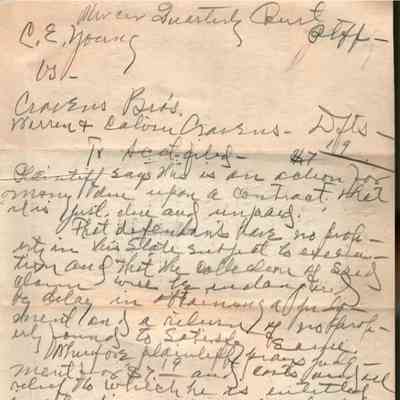 Mercer Quarterly Court
C. E. Young Plff-
vs-
Cravens Bros.
Warren & Calvin Cravens - Dfts-
To Acct filed - $7.19
Plaintiff says this is an action for
money due upon a contract that
it is just, due and unpaid.
That defendants have no prop-
erty in this State subject to execu-
tion and that the collection of said
claim will be endangered
by delay in obtaining a judg-
ment and a return of no prop-
erty found to satisfy same.
Wherefore plaintiff prays judg-
ment for $7.19 and costs and all
relief to which he is entitled